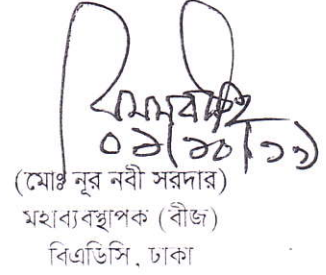 ০১/১০/১৭
(মোঃ নূর নবী সরদার)
মহাব্যবস্থাপক (বীজ)
বিএডিসি, ঢাকা